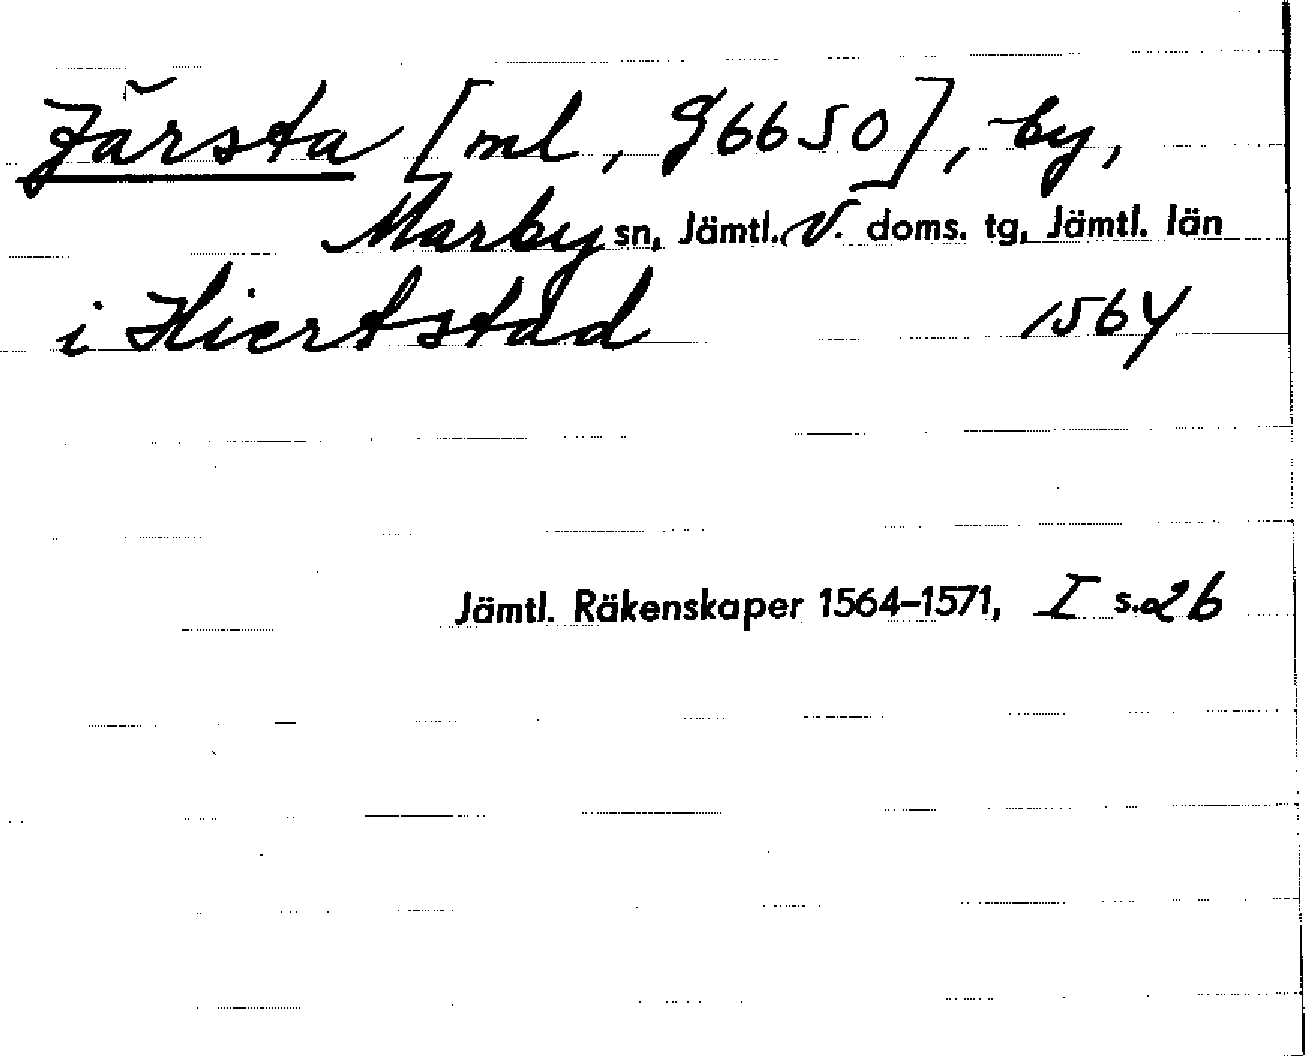 Järsta [ml, G6650], by,
Marby sn, Jämtl. V. doms. tg, Jämtl. län
i Hiertstad 1564
Jämtl. Räkenskaper 1564–1571, I s. 26